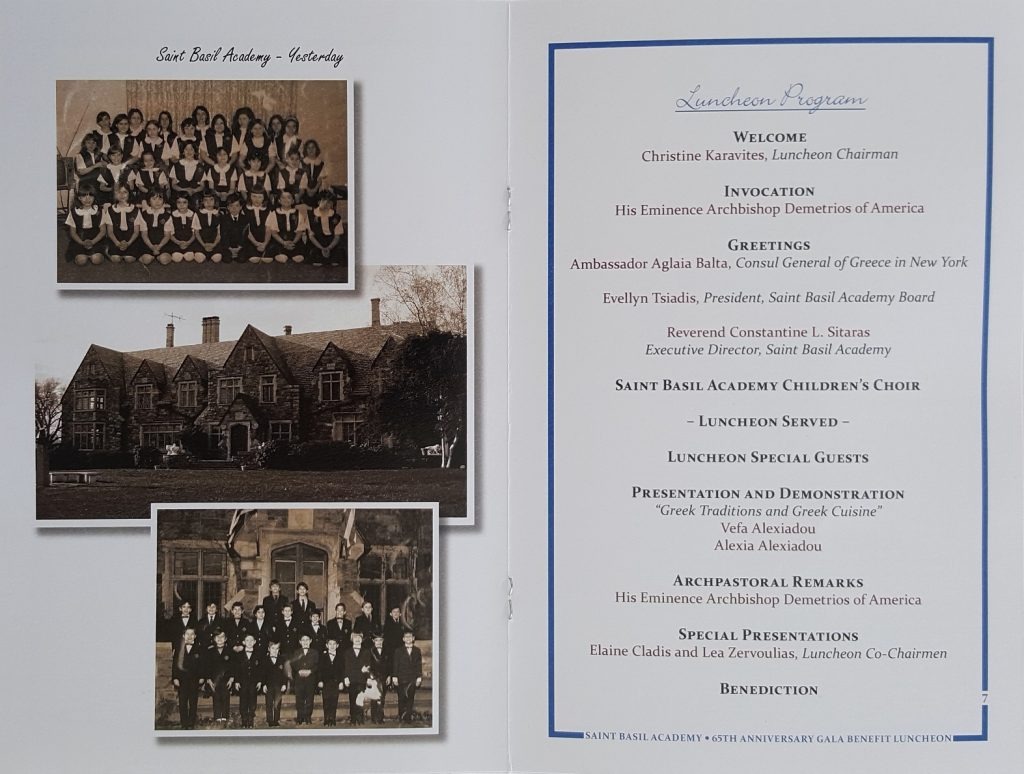 Saint Basil Academy - Yesterday
Luncheon Program
WELCOME
Christine Karavites, Luncheon Chairman
INVOCATION
His Eminence Archbishop Demetrios of America
GREETINGS
Ambassador Aglaia Balta, Consul General of Greece in New York
Evellyn Tsiadis, President, Saint Basil Academy Board
Reverend Constantine L. Sitaras
Executive Director, Saint Basil Academy
SAINT BASIL ACADEMY CHILDREN'S CHOIR
– LUNCHEON SERVED –
LUNCHEON SPECIAL GUESTS
PRESENTATION AND DEMONSTRATION
"Greek Traditions and Greek Cuisine"
Vefa Alexiadou
Alexia Alexiadou
ARCHPASTORAL REMARKS
His Eminence Archbishop Demetrios of America
SPECIAL PRESENTATIONS
Elaine Cladis and Lea Zervoulias, Luncheon Co-Chairmen
BENEDICTION
7
SAINT BASIL ACADEMY • 65TH ANNIVERSARY GALA BENEFIT LUNCHEON